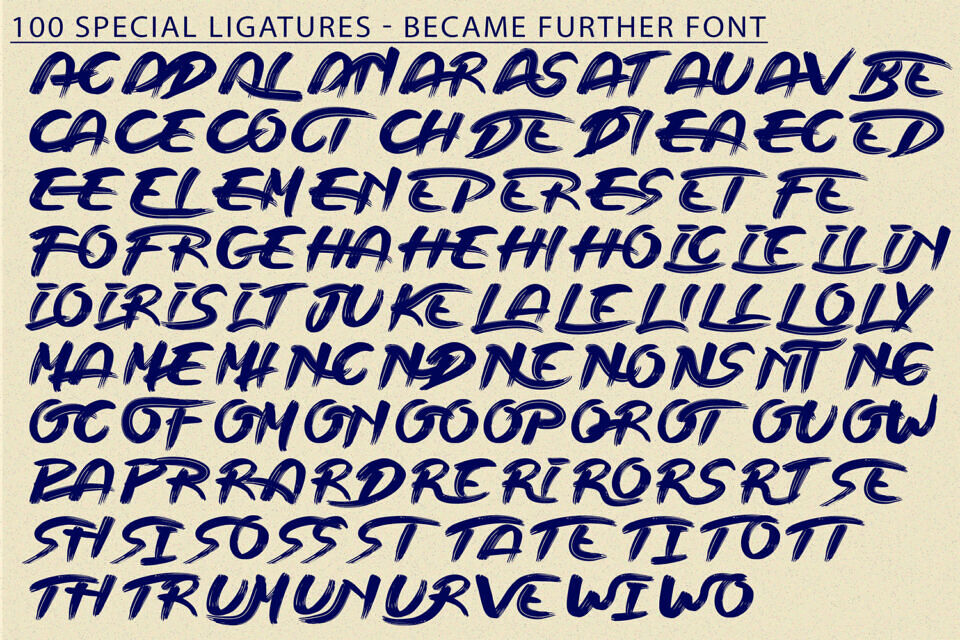 100 SPECIAL LIGATURES - BECAME FURTHER FONT
AC AD AL AN AR AS AT AU AV BE
CA CE CO CT CH DE DI EA EC ED
EE EL EM EN EP ER ES ET FE
FO FR GE HA HE HI HO IC IE IL IN
IO IR IS IT JU KE LA LE LI LL LO LY
MA ME MI NC ND NE NO NS NT NG
OC OF OM ON OO OP OR OT OU OW
PA PR RA RD RE RI RO RS RT SE
SH SI SO SS ST TA TE TI TO TT
TH TR UM UN UR VE WI WO